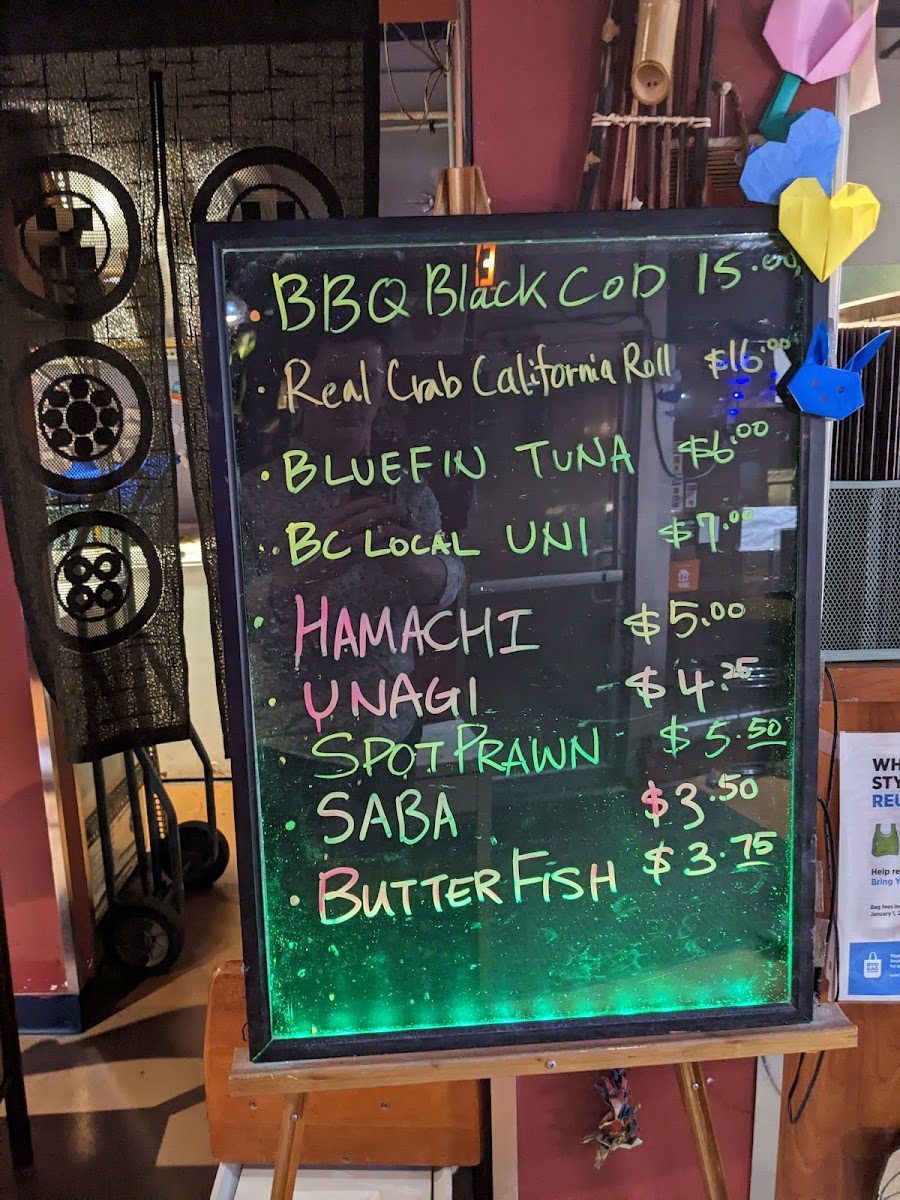 BBQ Black COD 15.00
· Real Crab California Roll $16.00
· BLUEFIN TUNA $6.00
· BC LOCAL UNI $7.00
· HAMACHI $5.00
· UNAGI $4.25
· SPOT PRAWN $5.50
· SABA $3.50
· BUTTER FISH $3.75
WH
STY
REU
Help re
Bring Y
Bag fees in
January 1, 2
BYO
BAG